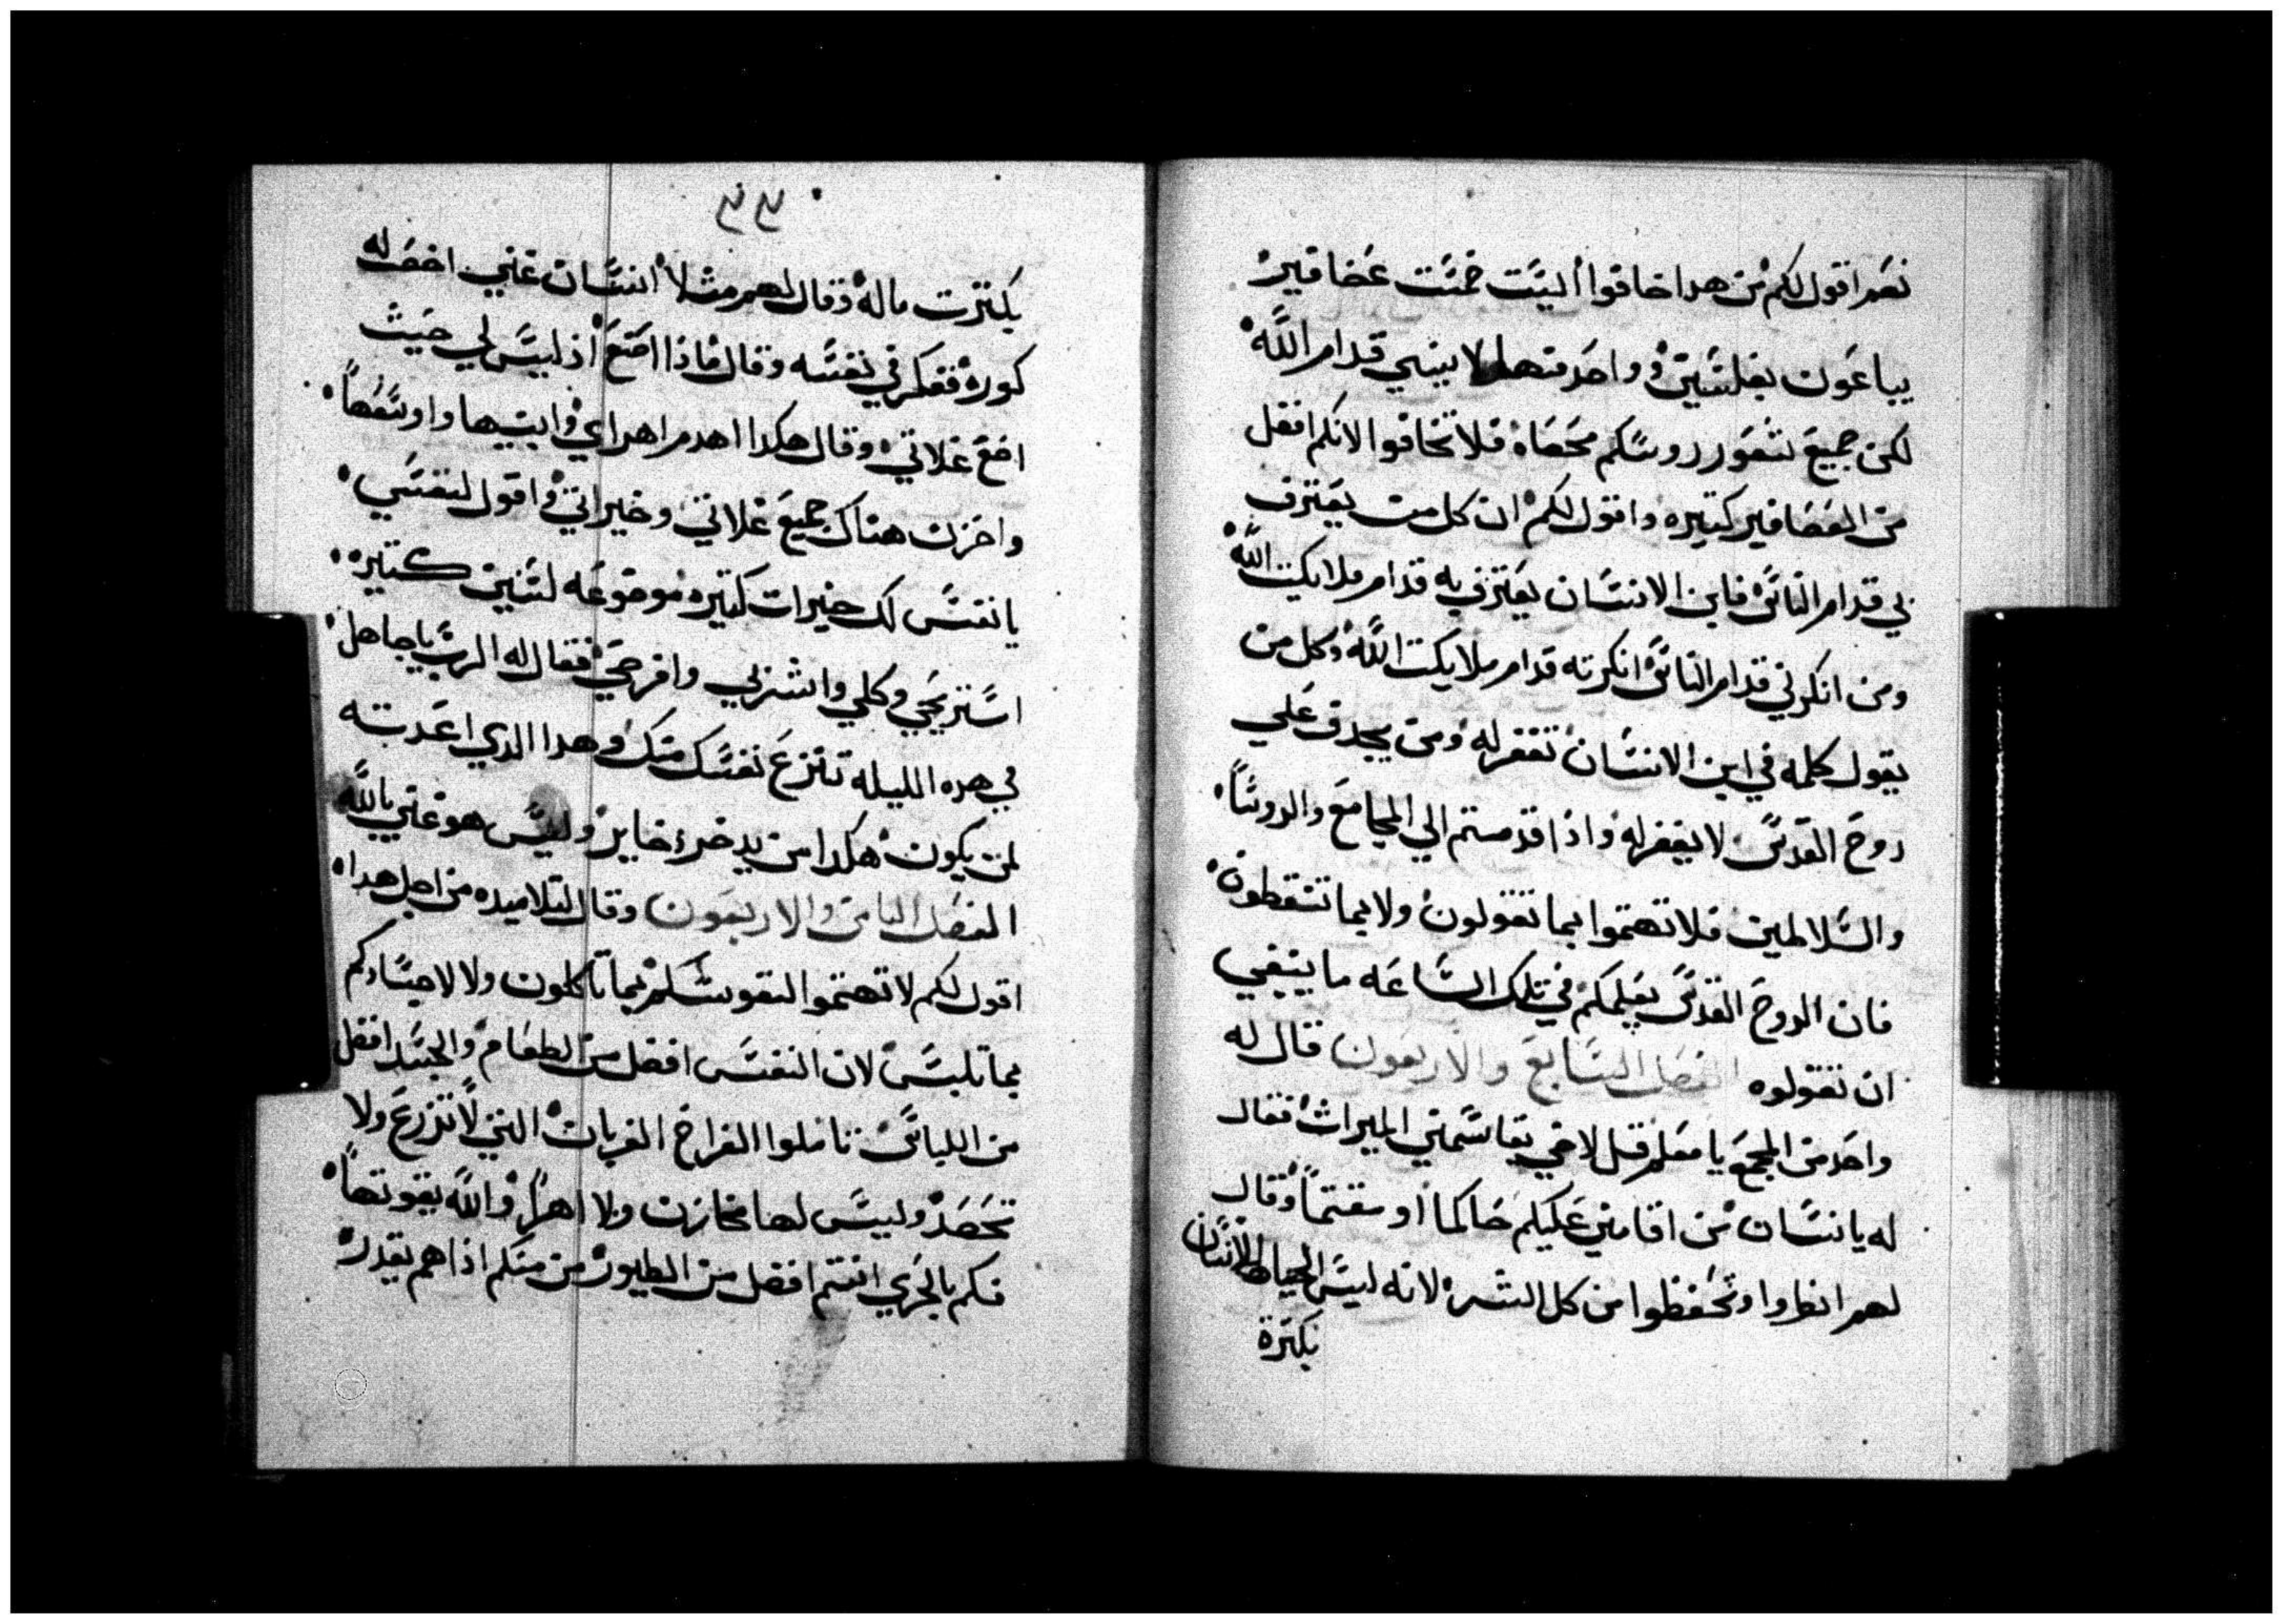 نعم اقول لكم من هدا خافوا اليست خمست عصافير
يباعون بفلسين وواحد منها لا ينسي قدام الله
لكن جميع شعور روسكم محصاه فلا تخافوا لانكم افضل
من العصافير كتيره واقول لكم ان كل من يعترف
بي قدام الناس فابن الانسان يعترف به قدام ملايكت الله
ومن انكرني قدام الناس انكرته قدام ملايكت الله وكل من
يقول كلمه في ابن الانسان تغفر له ومن يجدف علي
روح القدس لا يغفر له واذا قدمتم الي المجامع والروسا
والسلاطين فلا تهتموا بما تقولون ولا بما تنطقون
فان الروح القدس يعلمكم في تلك الساعه ما ينبغي
ان تقولوه الفصل السابع والاربعون قال له
واحد من المجمع يا معلم قل لاخي يقاسمني الميراث فقال
له يا انسان من اقامني عليكم حاكما او مقسما وقال
لهم انظروا وتحفظوا من كل الشره لانه ليس الحياه للانسان
بكترة
بكترت ماله وقال لهم مثلا انسان غني اخصب له
كوره ففكر في نفسه وقال ماذا اصنع اذ ليس لي حيث
اضع غلاتي وقال هكدا اهدم اهراي وابنيها واوسعها
واخزن هناك جميع غلاتي وخيراتي واقول لنفسي
يا نفس لك خيرات كتيره موضوعه لسنين كتيره
استريحي وكلي واشربي وافرحي فقال له الرب يا جاهل
في هده الليله تنزع نفسك منك وهدا الدي اعددته
لمن يكون هكدا من يدخر دخاير وليس هو غني بالله
الفصل التامن والاربعون وقال لتلاميده من اجل هدا
اقول لكم لا تهتموا لنفوسكم بما تاكلون ولا لاجسادكم
بما تلبس لان النفس افضل من الطعام والجسد افضل
من اللباس تاملوا الفراخ الغربان التي لا تزرع ولا
تحصد وليس لها مخازن ولا اهرا والله يقوتها
فكم بالحري انتم افضل من الطيور من منكم اذا هم يقدر